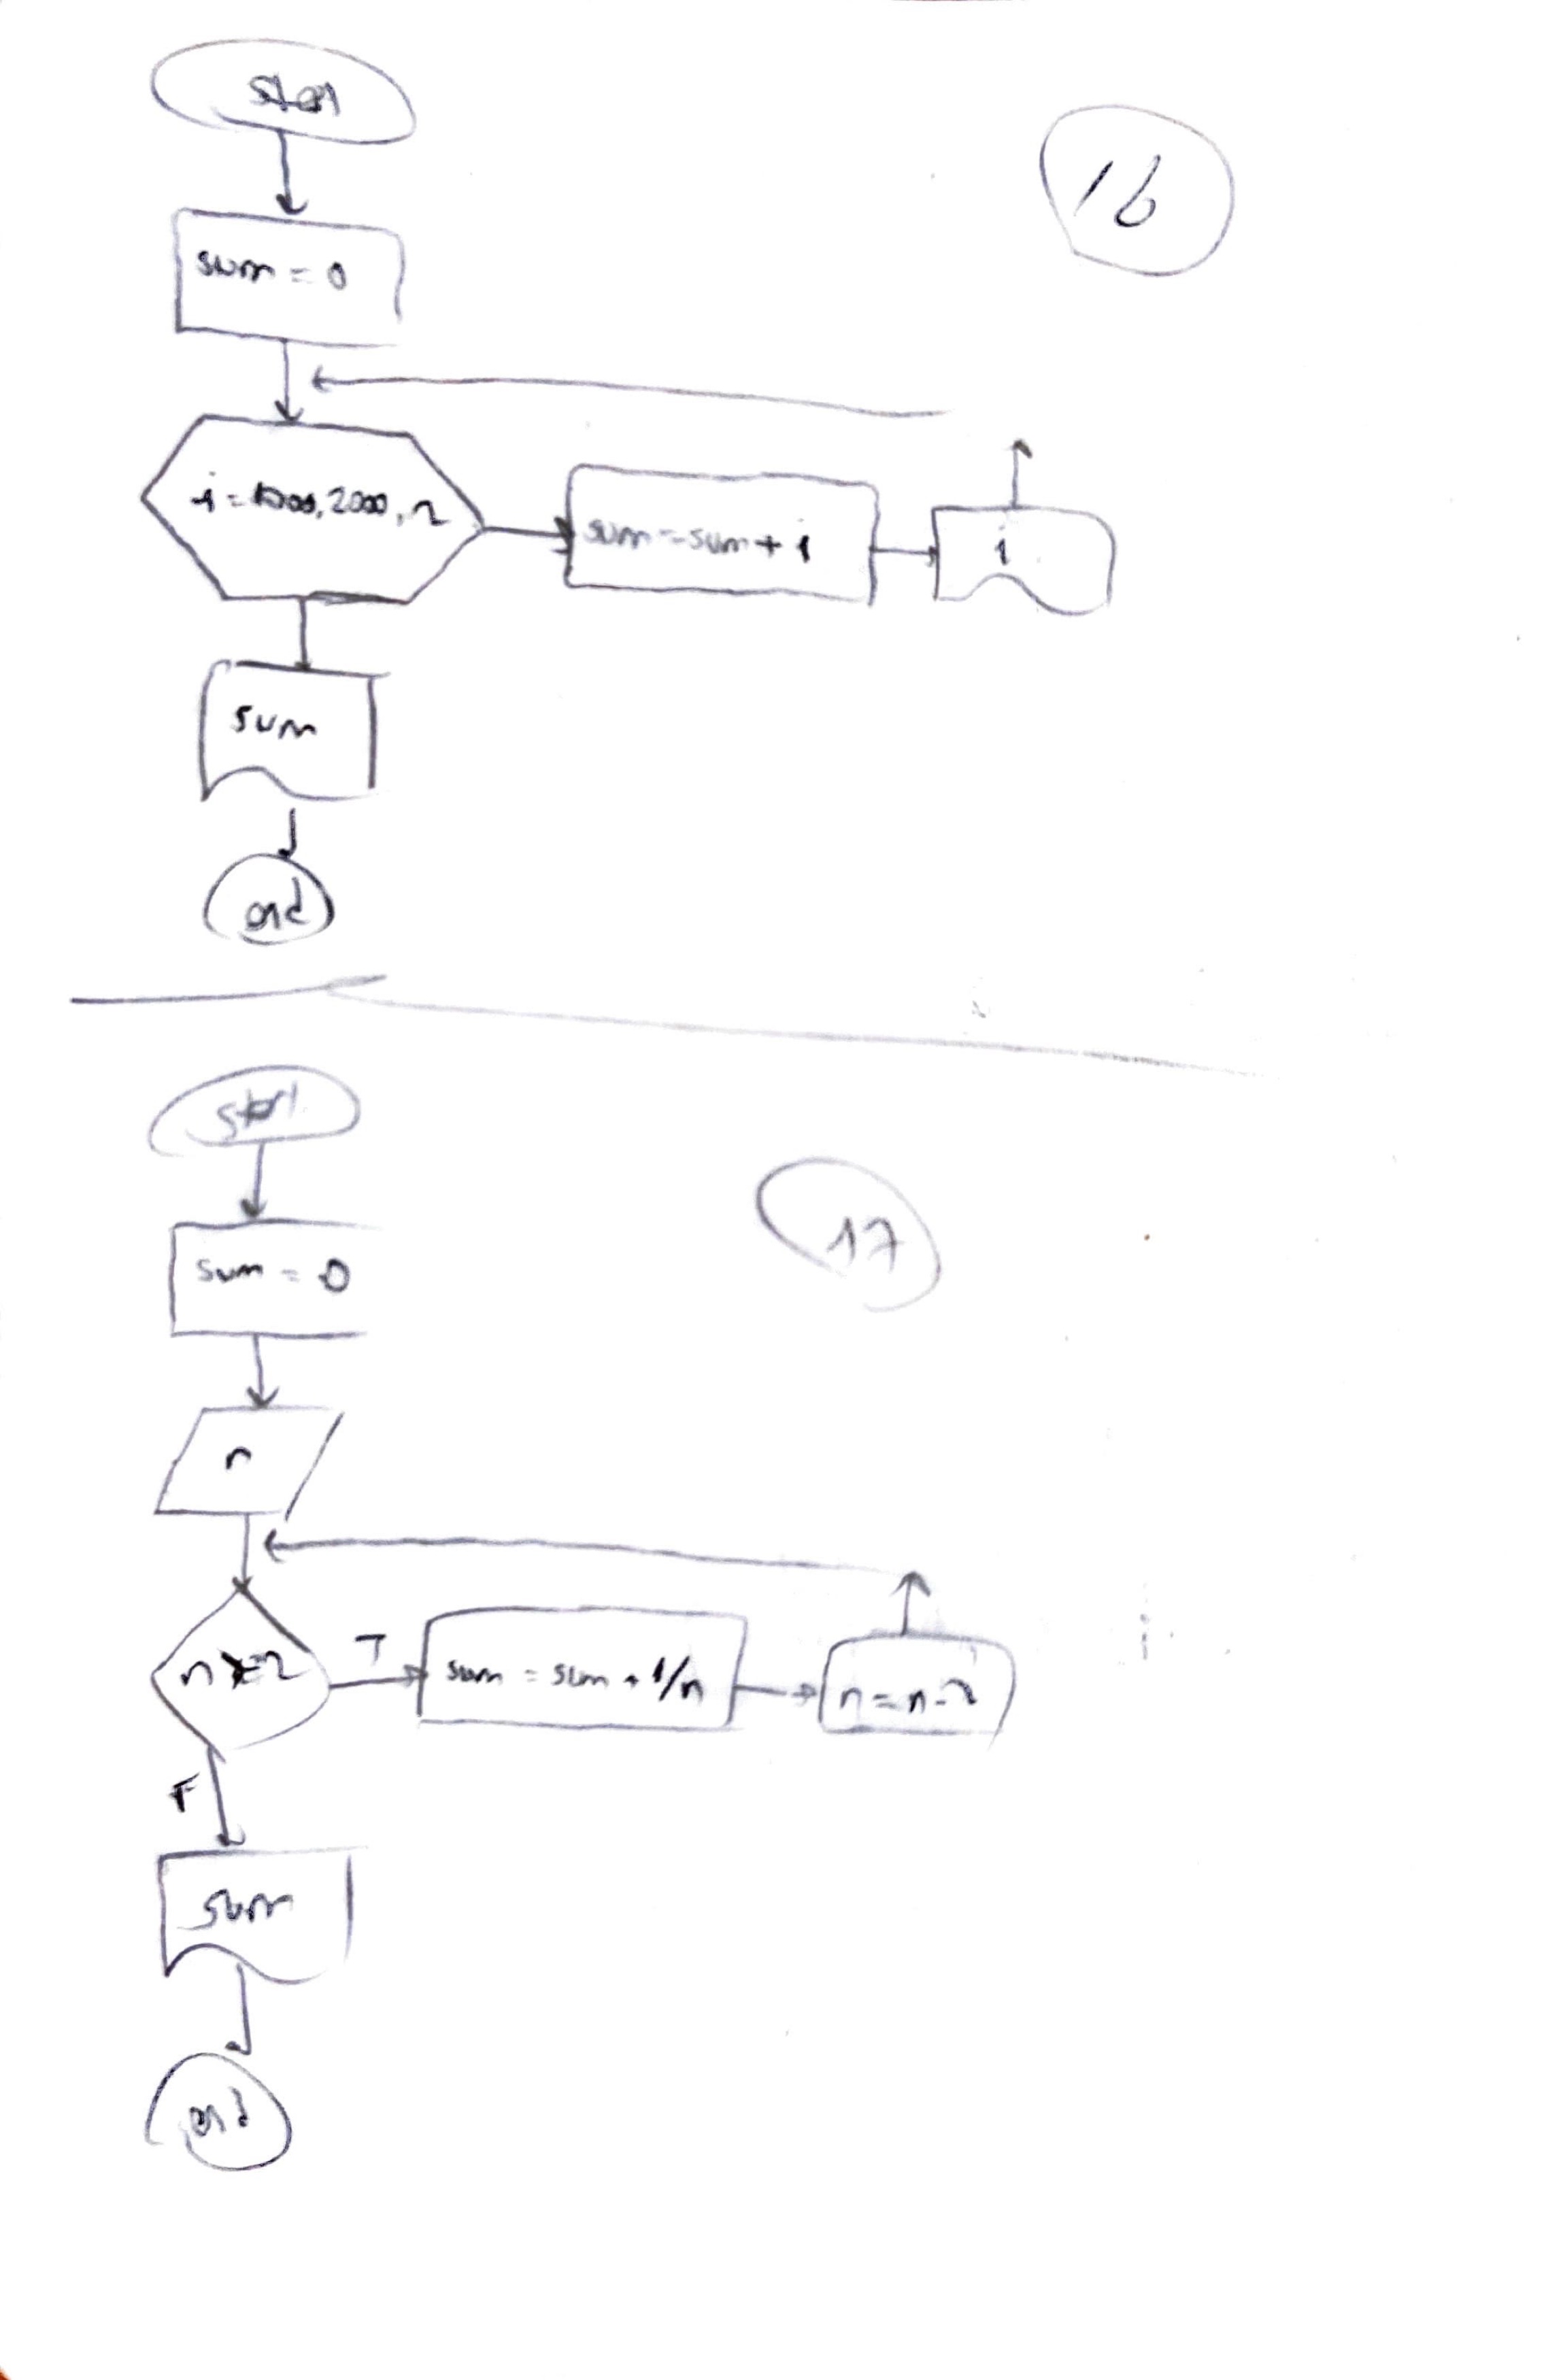 start
16
sum = 0
i = 1000, 2000, 2
sum = sum + i
i
sum
end
start
17
sum = 0
n
n >= 2
T
sum = sum + 1/n
n = n - 2
F
sum
end